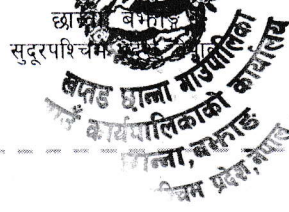 छान्ना बझाङ
सुदूरपश्चिम प्रदेश
छान्ना गाउँपालिका
गाउँ कार्यपालिकाको कार्यालय
छान्ना, बझाङ
प्रदेश, नेपाल